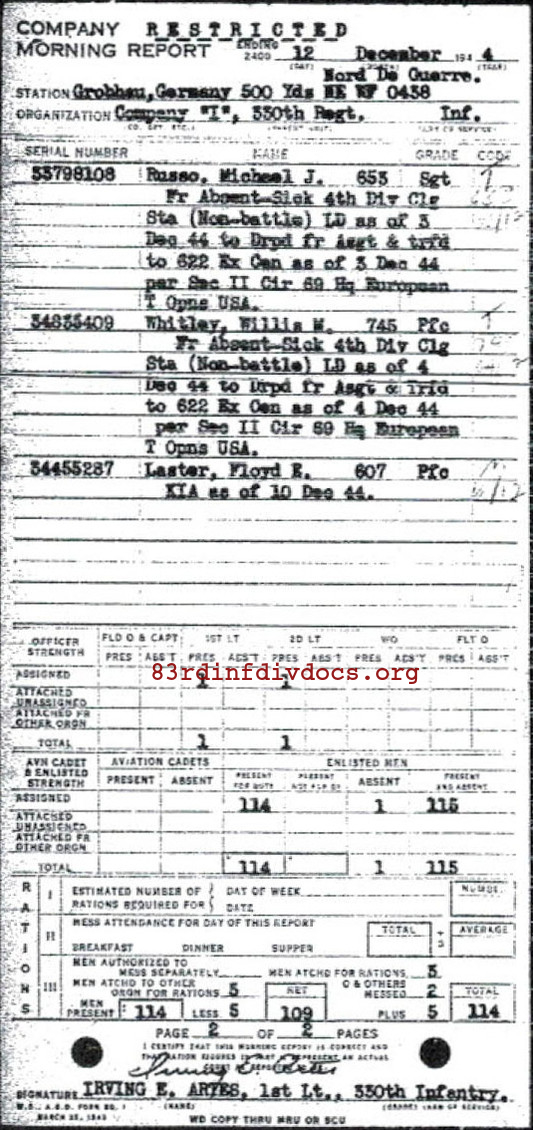 COMPANY RESTRICTED
MORNING REPORT ENDING 2400 12 December 194 4
(DAY) (YEAR)
Nord De Guerre.
STATION Grobhau, Germany 500 Yds NE WF 0438
ORGANIZATION Company "I", 330th Regt. Inf.
SERIAL NUMBER NAME GRADE CODE
33798108 Russo, Micheel J. 653 Sgt
Fr Absent-Sick 4th Div Clg
Sta (Non-battle) LD as of 3
Dec 44 to Drpd fr Asgt & trfd
to 622 Ex Cen as of 3 Dec 44
per Sec II Cir 69 Hq European
T Opns USA.
34835409 Whitley, Willis M. 745 Pfc
Fr Absent-Sick 4th Div Clg
Sta (Non-battle) LD as of 4
Dec 44 to Drpd fr Asgt & Trfd
to 622 Ex Cen as of 4 Dec 44
per Sec II Cir 69 Hq European
T Opns USA.
34455287 Laster, Floyd E. 607 Pfc
KIA as of 10 Dec 44.
OFFICER STRENGTH FLD O & CAPT 1ST LT 2D LT WO FLT O
PRES ABS'T PRES ABS'T PRES ABS'T PRES ABS'T PRES ABS'T
ASSIGNED 1 1
83rdinfdivdocs.org
ATTACHED UNASSIGNED
ATTACHED FR OTHER ORGN
TOTAL 1 1
AVN CADET & ENLISTED STRENGTH AVIATION CADETS ENLISTED MEN
PRESENT ABSENT PRESENT FOR DUTY PRESENT NOT FOR DY ABSENT PRESENT AND ABSENT
ASSIGNED 114 1 115
ATTACHED UNASSIGNED
ATTACHED FR OTHER ORGN
TOTAL 114 1 115
RATIONS
I ESTIMATED NUMBER OF RATIONS REQUIRED FOR DAY OF WEEK DATE NUMBER
II MESS ATTENDANCE FOR DAY OF THIS REPORT TOTAL ÷ 3 AVERAGE
BREAKFAST DINNER SUPPER
III MEN AUTHORIZED TO MESS SEPARATELY MEN ATCHD FOR RATIONS 3
MEN ATCHD TO OTHER ORGN FOR RATIONS 5 NET O & OTHERS MESSED 2 TOTAL
MEN PRESENT 114 LESS 5 109 PLUS 5 114
PAGE 2 OF 2 PAGES
I CERTIFY THAT THIS MORNING REPORT IS CORRECT AND
SIGNATURE IRVING E. ARTES, 1st Lt., 330th Infantry.
W.D., A.G.O. FORM NO. 1 (NAME) (GRADE) (ARM OR SERVICE)
MARCH 25, 1943
WD COPY THRU MRU OR SCU